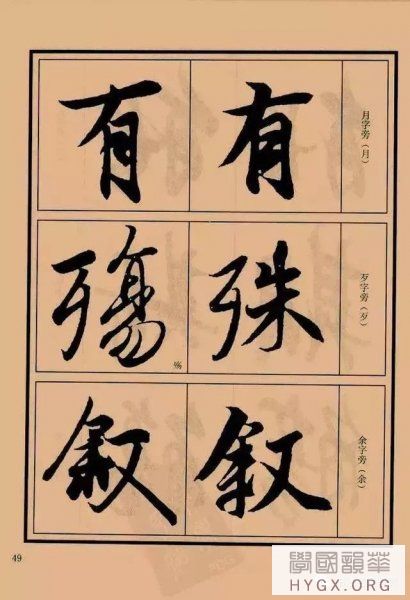 月字旁（月）
有
有
歹字旁（歹）
殊
殤
殇
余字旁（余）
叙
叙
49
學國韻華
HYGX.ORG